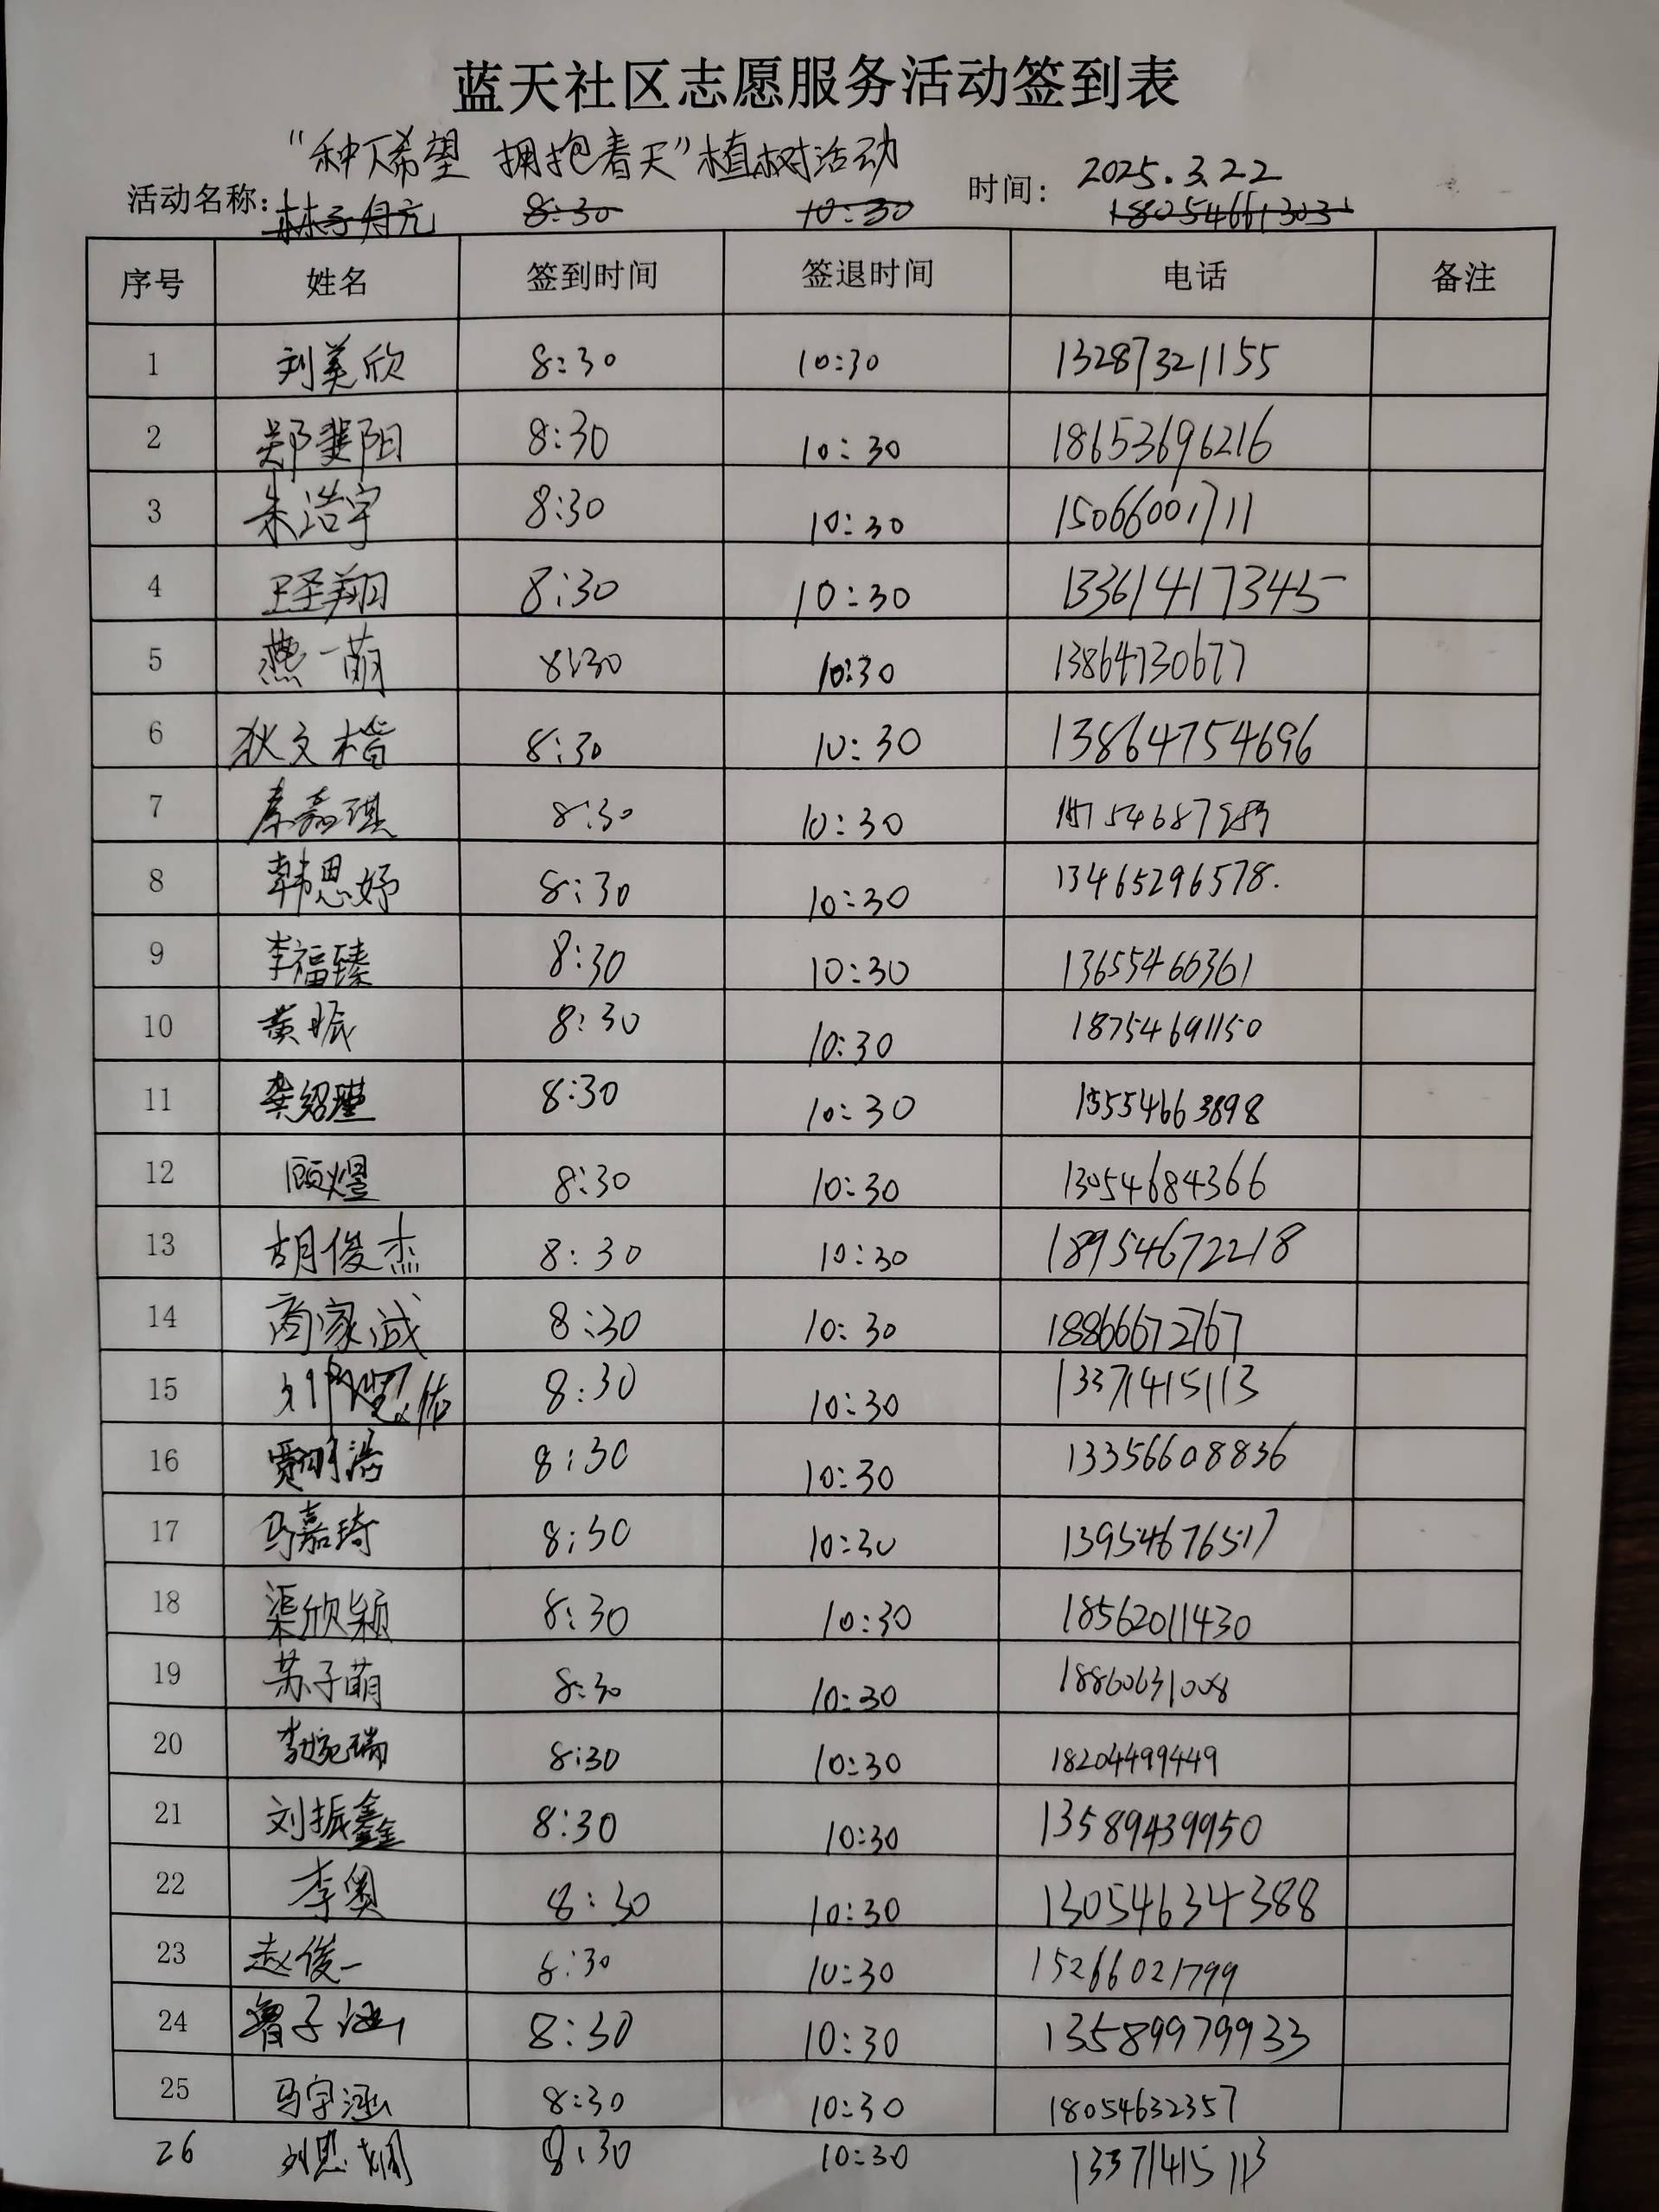 蓝天社区志愿服务活动签到表
“种下希望 拥抱春天”植树活动
活动名称: 时间: 2025.3.22
8:30 10:30 18054661303
序号 姓名 签到时间 签退时间 电话 备注
1 刘美欣 8:30 10:30 13287321155
2 郑斐阳 8:30 10:30 18653696216
3 朱浩宇 8:30 10:30 15066001711
4 王圣翔 8:30 10:30 13361417345
5 燕一萌 8:30 10:30 13864730677
6 狄文楷 8:30 10:30 13864754696
7 秦嘉琪 8:30 10:30
8 韩思妤 8:30 10:30 13465296578.
9 李福臻 8:30 10:30 13655466361
10 黄振 8:30 10:30 18754691150
11 8:30 10:30 15554663898
12 顾煜 8:30 10:30 13054684366
13 胡俊杰 8:30 10:30 18954672218
14 商家诚 8:30 10:30 18866672767
15 8:30 10:30 13371415113
16 贾明浩 8:30 10:30 13356608836
17 马嘉琦 8:30 10:30 13954676517
18 渠欣颖 8:30 10:30 18562011430
19 苏子萌 8:30 10:30 18860631008
20 李婉瑞 8:30 10:30 18204499449
21 刘振鑫 8:30 10:30 13589439950
22 李奥 8:30 10:30 13054634388
23 赵俊一 8:30 10:30 15266021799
24 鲁子涵 8:30 10:30 13589979933
25 马宇涵 8:30 10:30 18054632357
26 刘思娴 8:30 10:30 13371415113